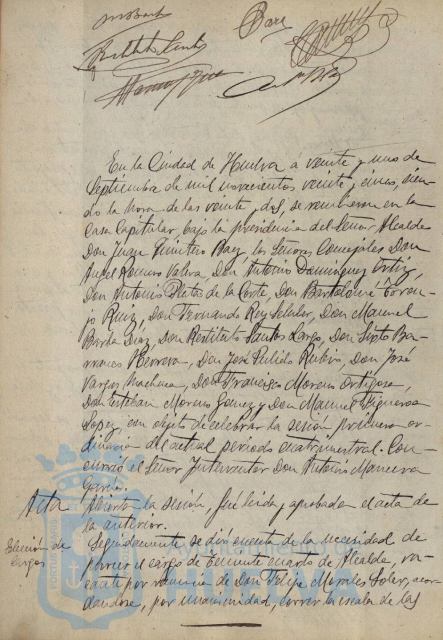 En la Ciudad de Huelva á veinte y uno de
Septiembre de mil novecientos veinte y cinco, sien-
do la hora de las veinte y dos, se reunieron en la
Casa Capitular, bajo la presidencia del Señor Alcalde
Don Juan Quintero Baez, los Señores Concejales Don
Angel Romero Don Antonio Dominguez Ortiz,
Don Antonio de la Corte, Don Bartolomé Toron-
jo Ruiz, Don Fernando Rey Don Manuel
Borda Diaz, Don Restituto Santos Largo, Don Sixto Ba-
rranco Herrera, Don José Pulido Rubio, Don José
Vargas Machuca, Don Francisco Moreno Ortigosa,
Don Esteban Moreno Gomez y Don Manuel Figueroa
Lopez, con objeto de celebrar la sesión primera or-
dinaria del actual periodo cuatrimestral. Con-
currió el Señor Interventor Don Antonio
Garcia.
Acta Abierta la sesión, fué leida y aprobada el acta de
la anterior.
Elección de cargos
Seguidamente se dió cuenta de la necesidad de
proveer el cargo de Teniente cuarto de Alcalde, va-
cante por renuncia de Don Felipe Morales Soler, acor-
dandose, por unanimidad, correr la escala de las